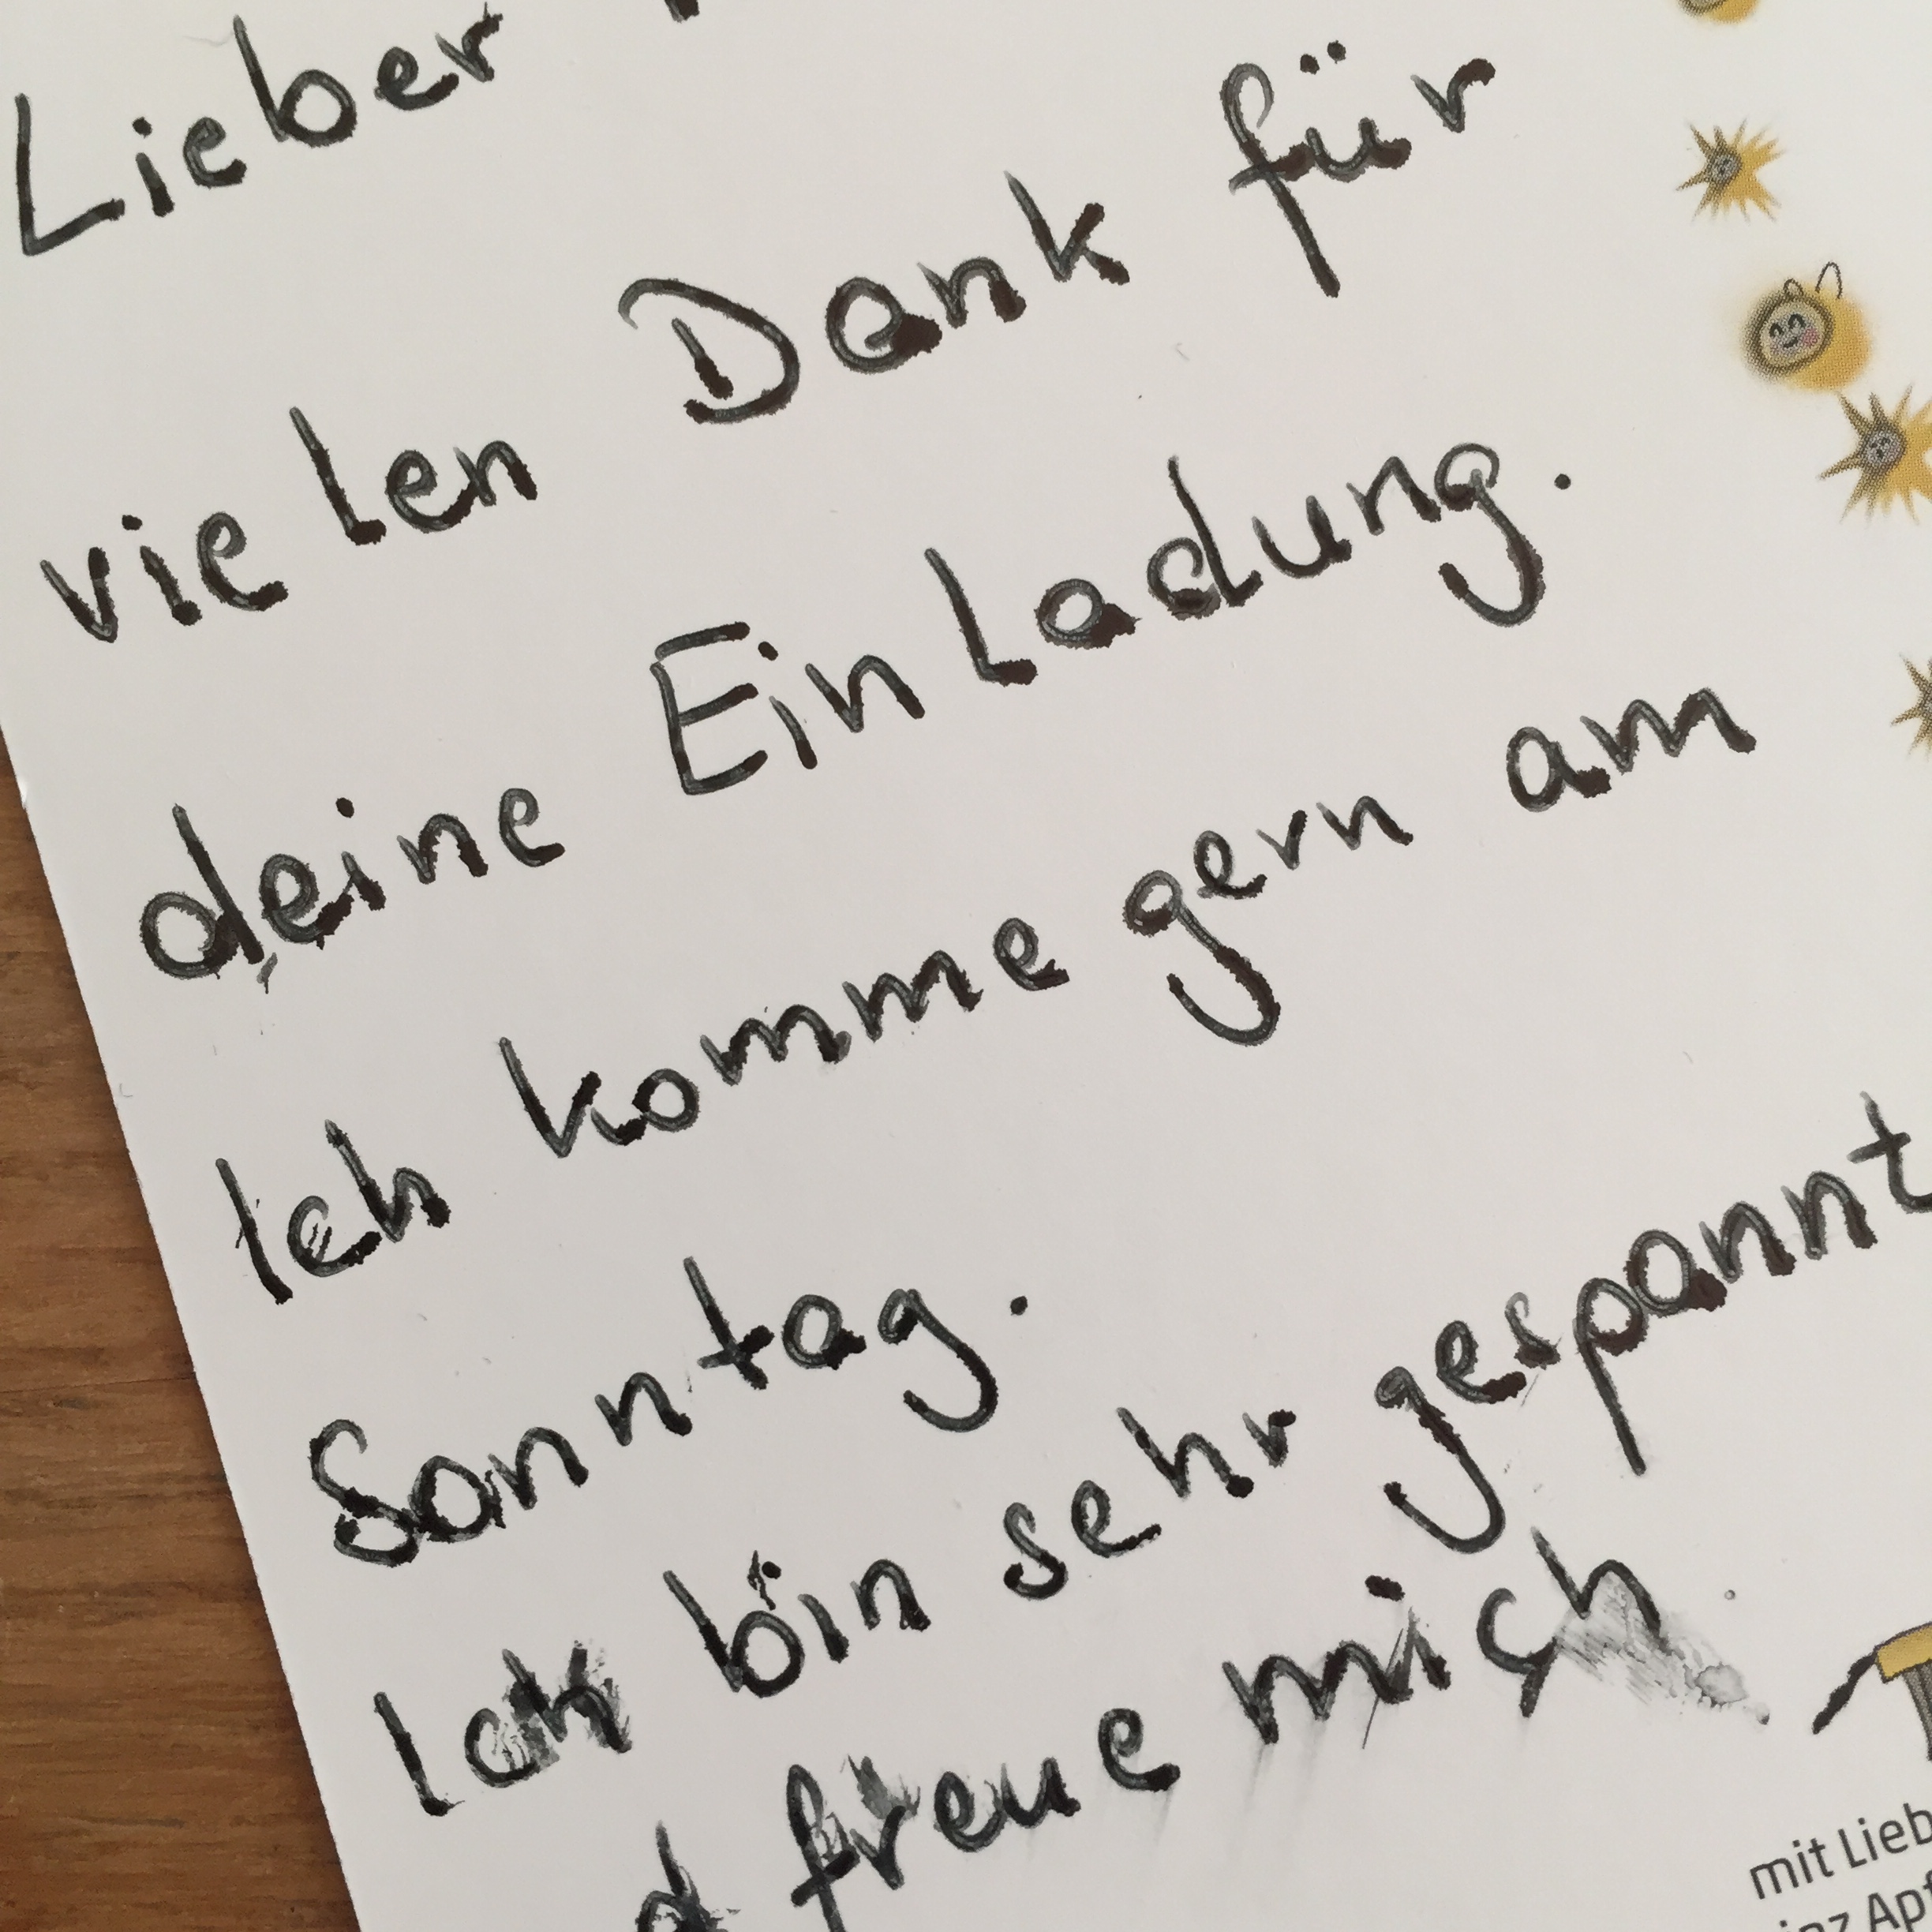 Lieber
vielen Dank für
deine Einladung.
Ich komme gern am
Sonntag.
Ich bin sehr gespannt
freue mich
mit Lieb